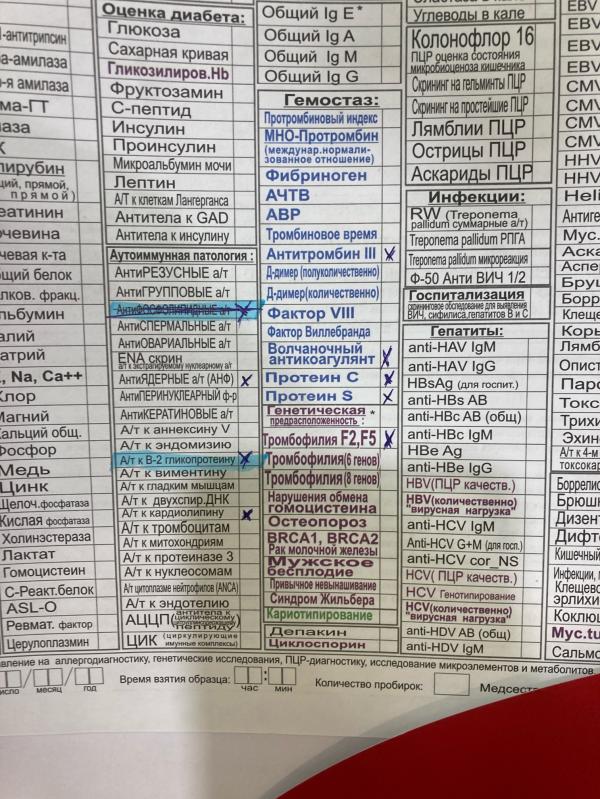 -антитрипсин
а-амилаза
-я амилаза
ма-ГТ
лаза
К
лирубин
щий, прямой,
прямой)
еатинин
очевина
чевая к-та
бщий белок
лков. фракц.
льбумин
алий
атрий
K, Na, Ca++
Хлор
Магний
Кальций общ.
Фосфор
Медь
Цинк
Щелоч.фосфатаза
Кислая фосфатаза
Холинэстераза
Лактат
Гомоцистеин
С-Реакт.белок
ASL-O
Ревмат. фактор
Церулоплазмин
Оценка диабета:
Глюкоза
Сахарная кривая
Гликозилиров.Hb
Фруктозамин
С-пептид
Инсулин
Проинсулин
Микроальбумин мочи
Лептин
А/Т к клеткам Лангерганса
Антитела к GAD
Антитела к инсулину
Аутоиммунная патология :
АнтиРЕЗУСНЫЕ а/т
АнтиГРУППОВЫЕ а/т
АнтиФОСФОЛИПИДНЫЕ а/т
АнтиСПЕРМАЛЬНЫЕ а/т
АнтиОВАРИАЛЬНЫЕ а/т
ENA скрин
а/т к экстрагируемому нуклеарному а/г
АнтиЯДЕРНЫЕ а/т (АНФ)
АнтиПЕРИНУКЛЕАРНЫЙ ф-р
АнтиКЕРАТИНОВЫЕ а/т
А/т к аннексину V
А/т к эндомизию
А/т к В-2 гликопротеину
А/т к виментину
А/т к гладким мышцам
А/т к двухспир.ДНК
А/т к кардиолипину
А/т к тромбоцитам
А/т к митохондриям
А/т к протеиназе 3
А/т к нуклеосомам
А/т цитоплазме нейтрофилов (ANCA)
А/т к эндотелию
АЦЦП(антитела к
циклическому
пептиду)
ЦИК (циркулирующие
имунные комплексы)
Общий Ig E *
Общий Ig A
Общий Ig M
Общий Ig G
Гемостаз:
Протромбиновый индекс
МНО-Протромбин
(междунар.нормали-
зованное отношение)
Фибриноген
АЧТВ
АВР
Тромбиновое время
Антитромбин III
Д-димер (полуколичественно)
Д-димер(количественно)
Фактор VIII
Фактор Виллебранда
Волчаночный
антикоагулянт
Протеин C
Протеин S
Генетическая *
предрасположенность :
Тромбофилия F2,F5
Тромбофилия(6 генов)
Тромбофилия (8 генов)
Нарушения обмена
гомоцистеина
Остеопороз
BRCA1, BRCA2
Рак молочной железы
Мужское
бесплодие
Привычное невынашивание
Синдром Жильбера
Кариотипирование
Депакин
Циклоспорин
Углеводы в кале
Колонофлор 16
ПЦР оценка состояния
микробиоценоза кишечника
Скрининг на гельминты ПЦР
Скрининг на простейшие ПЦР
Лямблии ПЦР
Острицы ПЦР
Аскариды ПЦР
Инфекции:
RW (Treponema
pallidum суммарные а/т)
Treponema pallidum РПГА
Treponema pallidum микрореакция
Ф-50 Анти ВИЧ 1/2
Госпитализация
скрининговое обследование для выявления
ВИЧ, сифилиса,гепатитов В и С
Гепатиты:
anti-HAV IgM
anti-HAV IgG
HBsAg (для госпит.)
anti-HBs AB
anti-HBc AB (общ)
anti-HBc IgM
HBe Ag
anti-HBe IgG
HBV(ПЦР качеств.)
HBV(количественно)
"вирусная нагрузка"
anti-HCV IgM
anti-HCV G+M (для госп.)
anti-HCV cor_NS
HCV( ПЦР качеств.)
HCV Генотипирование
HCV(количественно)
"вирусная нагрузка"
anti-HDV AB (общ)
anti-HDV IgM
EBV
EBV
EBV
EBV
CMV
CMV
CMV
HHV
HHV
Heli
Антиге
Мус
Аска
Аспер
Бруц
Борре
Клещ
Корь
Лямб
Опист
Паро
Токс
Трихи
Эхин
А/т к 4-м
токсокар
Боррелио
Брюшн
Дизент
Дифте
Кишечный
Инфекции, п
Клещево
эрлихи
Коклю
Myc.tu
Сальмо
авление на аллергодиагностику, генетические исследования, ПЦР-диагностику, исследование микроэлементов и метаболитов
исло месяц год
Время взятия образца: : час мин
Количество пробирок:
Медсест